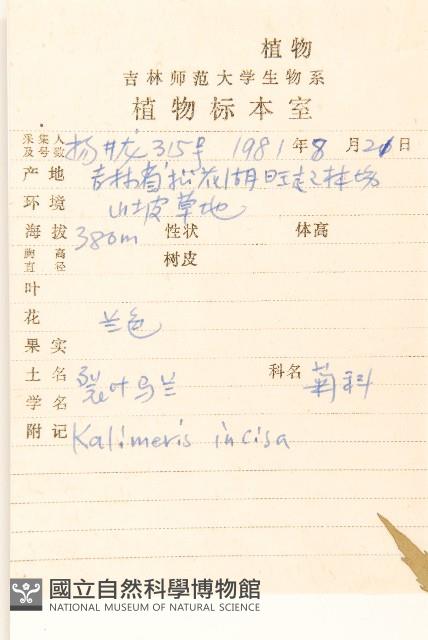 植物
吉林师范大学生物系
植物标本室
采集人及号数 杨 315号 1981年8月21日
产地 吉林省松花湖旺起林场
环境 山坡草地
海拔 380m 性状 体高
胸高直径 树皮
叶
花 兰色
果实
土名 裂叶马兰 科名 菊科
学名
附记 Kalimeris incisa
國立自然科學博物館
NATIONAL MUSEUM OF NATURAL SCIENCE